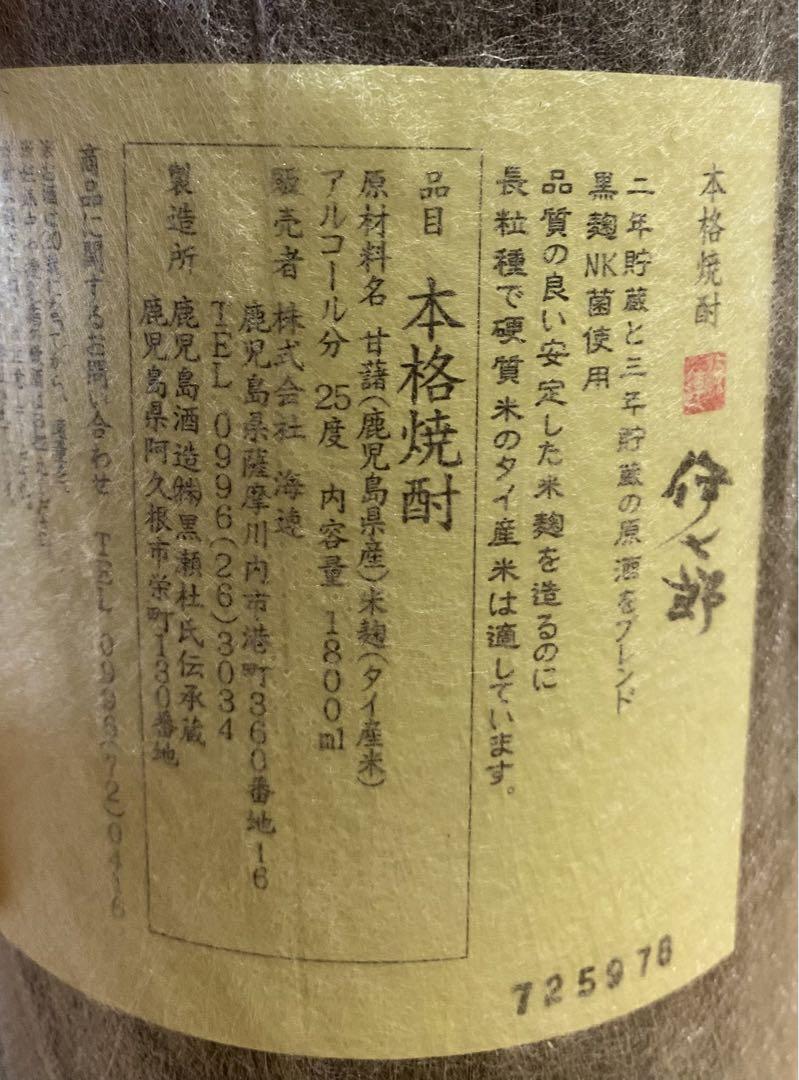 本格焼酎
伊七郎
二年貯蔵と三年貯蔵の原酒をブレンド
黒麹NK菌使用
品質の良い安定した米麹を造るのに
長粒種で硬質米のタイ産米は適しています。
品目 本格焼酎
原材料名 甘藷(鹿児島県産)米麹(タイ産米)
アルコール分 25度 内容量 1800ml
販売者 株式会社 海連
鹿児島県薩摩川内市港町360番地16
TEL 0996(26)3034
製造所 鹿児島酒造㈱黒瀬杜氏伝承蔵
鹿児島県阿久根市栄町130番地
商品に関するお問い合わせ TEL 0996(72)0416
725976